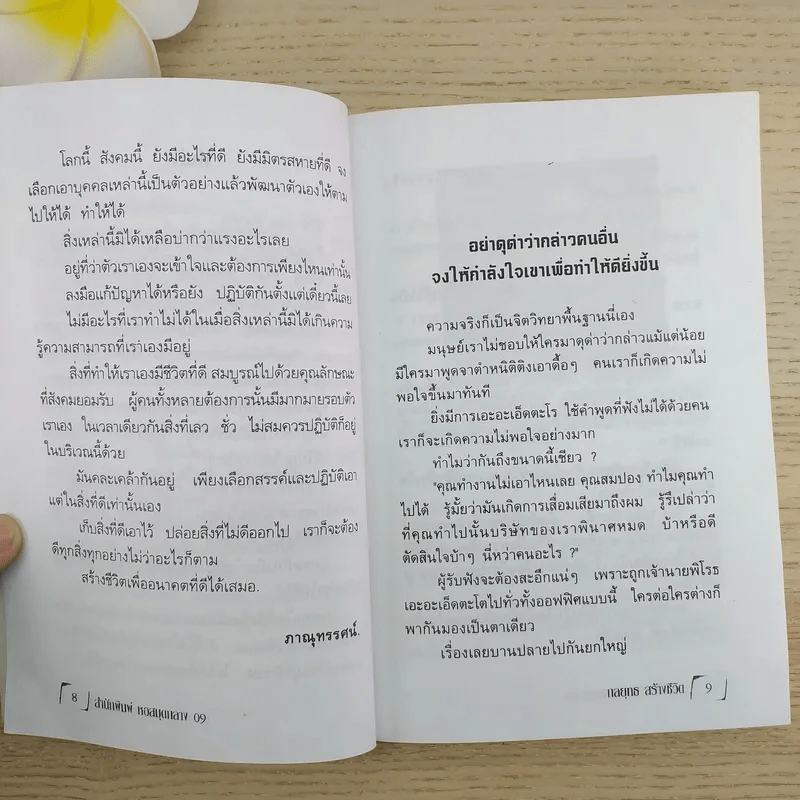 โลกนี้ สังคมนี้ ยังมีอะไรที่ดี ยังมีมิตรสหายที่ดี จง
เลือกเอาบุคคลเหล่านี้เป็นตัวอย่างแล้วพัฒนาตัวเองให้ตาม
ไปให้ได้ ทำให้ได้
สิ่งเหล่านี้มิได้เหลือบ่ากว่าแรงอะไรเลย
อยู่ที่ว่าตัวเราเองจะเข้าใจและต้องการเพียงไหนเท่านั้น
ลงมือแก้ปัญหาได้หรือยัง ปฏิบัติกันตั้งแต่เดี๋ยวนี้เลย
ไม่มีอะไรที่เราทำไม่ได้ในเมื่อสิ่งเหล่านี้มิได้เกินความ
รู้ความสามารถที่เราเองมีอยู่
สิ่งที่ทำให้เราเองมีชีวิตที่ดี สมบูรณ์ไปด้วยคุณลักษณะ
ที่สังคมยอมรับ ผู้คนทั้งหลายต้องการนั้นมีมากมายรอบตัว
เราเอง ในเวลาเดียวกันสิ่งที่เลว ชั่ว ไม่สมควรปฏิบัติก็อยู่
ในบริเวณนี้ด้วย
มันคละเคล้ากันอยู่ เพียงเลือกสรรค์และปฏิบัติเอา
แต่ในสิ่งที่ดีเท่านั้นเอง
เก็บสิ่งที่ดีเอาไว้ ปล่อยสิ่งที่ไม่ดีออกไป เราก็จะต้อง
ดีทุกสิ่งทุกอย่างไม่ว่าอะไรก็ตาม
สร้างชีวิตเพื่ออนาคตที่ดีได้เสมอ.
ภาณุทรรศน์.
8 สำนักพิมพ์ หอสมุดกลาง 09
อย่าดุด่าว่ากล่าวคนอื่น
จงให้กำลังใจเขาเพื่อทำให้ดียิ่งขึ้น
ความจริงก็เป็นจิตวิทยาพื้นฐานนี้เอง
มนุษย์เราไม่ชอบให้ใครมาดุด่าว่ากล่าวแม้แต่น้อย
มีใครมาพูดจาตำหนิติติงเอาดื้อๆ คนเราก็เกิดความไม่
พอใจขึ้นมาทันที
ยิ่งมีการเอะอะเอ็ดตะโร ใช้คำพูดที่ฟังไม่ได้ด้วยคน
เราก็จะเกิดความไม่พอใจอย่างมาก
ทำไมว่ากันถึงขนาดนี้เชียว ?
"คุณทำงานไม่เอาไหนเลย คุณสมปอง ทำไมคุณทำ
ไปได้ รู้มั้ยว่ามันเกิดการเสื่อมเสียมาถึงผม รู้รึเปล่าว่า
ที่คุณทำไปนั้นบริษัทของเราพินาศหมด บ้าหรือดี
ตัดสินใจบ้าๆ นี่หว่าคนอะไร ?"
ผู้รับฟังจะต้องสะอึกแน่ๆ เพราะถูกเจ้านายพิโรธ
เอะอะเอ็ดตะโตไปทั่วทั้งออฟฟิศแบบนี้ ใครต่อใครต่างก็
พากันมองเป็นตาเดียว
เรื่องเลยบานปลายไปกันยกใหญ่
กลยุทธ สร้างชีวิต 9